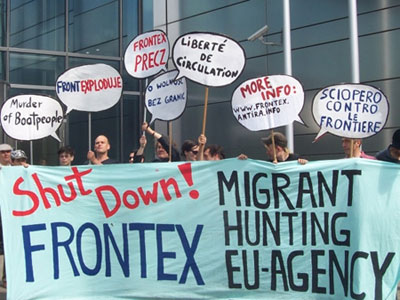 Murder of
Boatpeople
FRONTEXPLODUJE
FRONTEX
PRECZ
O WOLNOŚĆ
BEZ GRANIC
LIBERTÉ DE
CIRCULATION
MORE INFO:
WWW.FRONTEX.
ANTIRA.INFO
SCIOPERO
CONTRO
LE
FRONTIERE
Shut Down!
FRONTEX
MIGRANT
HUNTING
EU-AGENCY